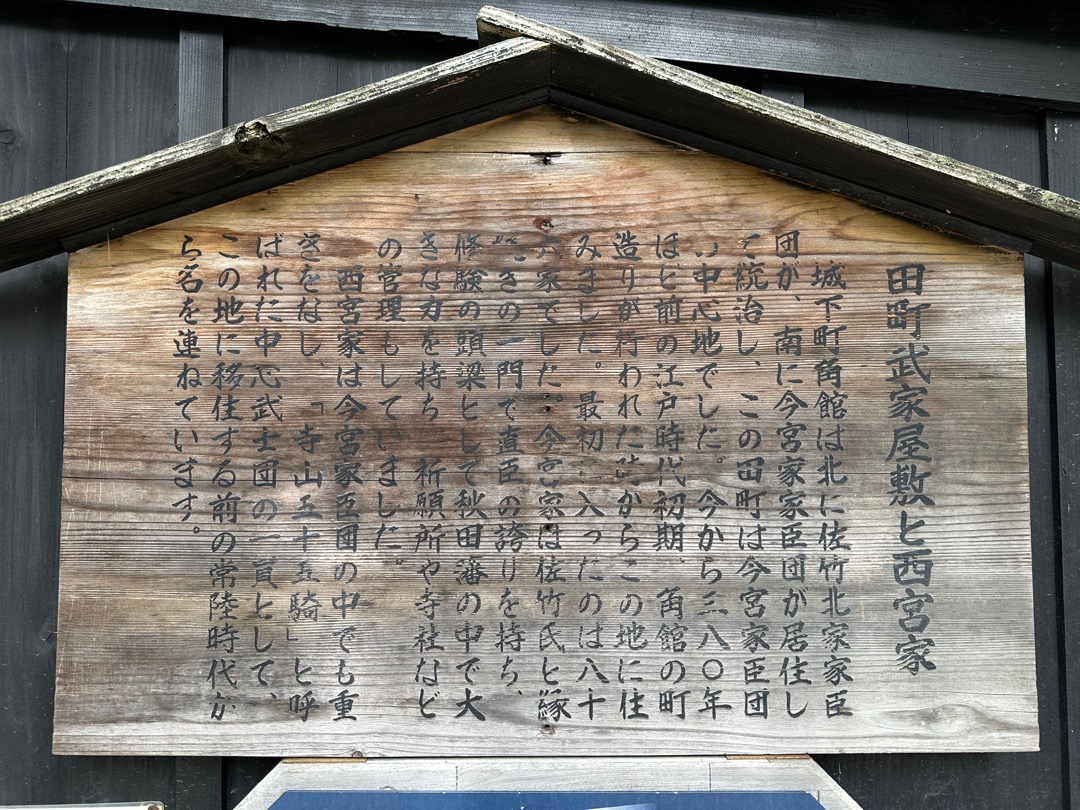 田町武家屋敷と西宮家
城下町角館は北に佐竹北家家臣
団が、南に今宮家家臣団が居住し
て統治し、この田町は今宮家臣団
の中心地でした。今から三八〇年
ほど前の江戸時代初期、角館の町
造りが行われた時からこの地に住
みました。最初に入ったのは八十
六家でした。今宮家は佐竹氏と縁
つづきの一門で直臣の誇りを持ち、
修験の頭梁として秋田藩の中で大
きな力を持ち、祈願所や寺社など
の管理もしていました。
西宮家は今宮家臣団の中でも重
きをなし、「寺山五十五騎」と呼
ばれた中心武士団の一員として、
この地に移住する前の常陸時代か
ら名を連ねています。